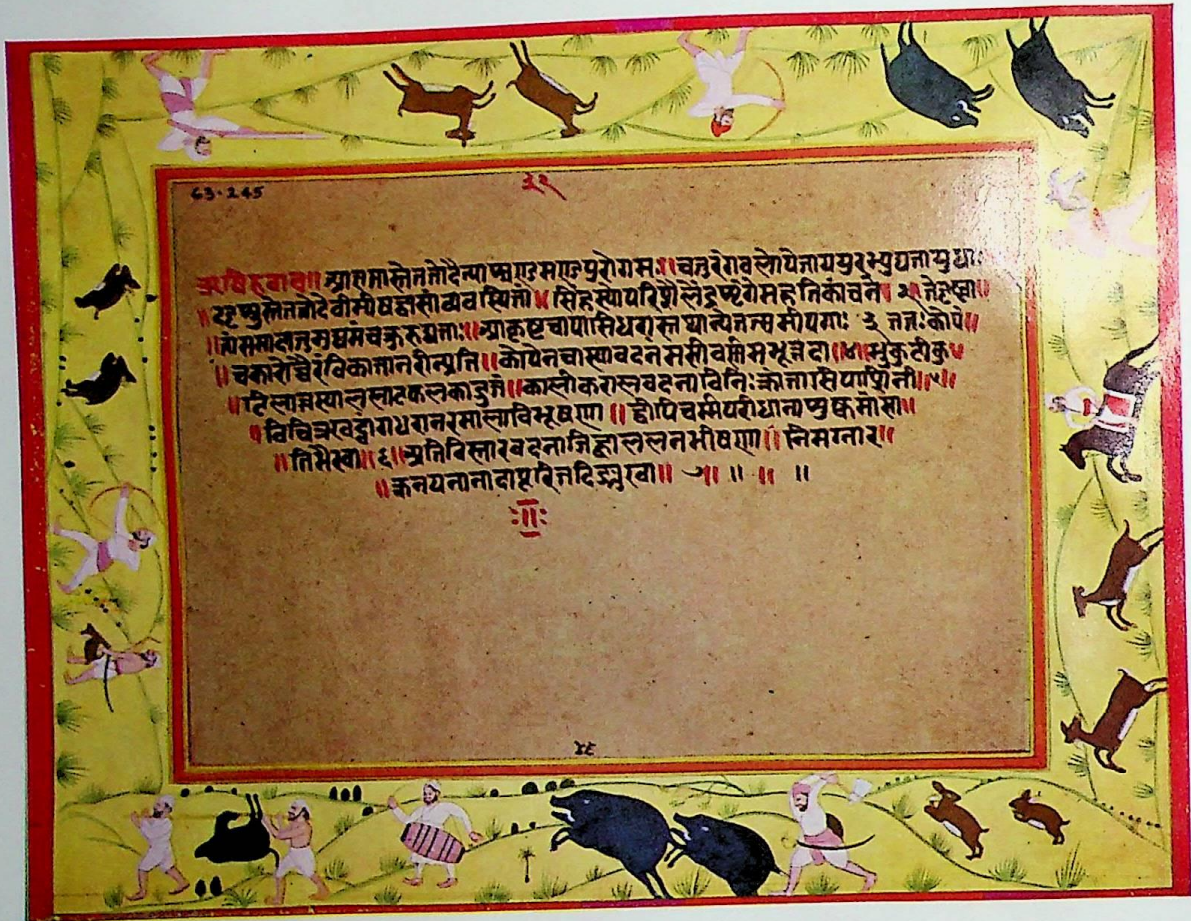 63·245
३२
ऋषिरुवाच॥ आज्ञप्तास्तेततोदैत्याश्चण्डमुण्डपुरोगमाः॥ चतुरंगबलोपेताययुरभ्युद्यतायुधाः
॥ददृशुस्तेततोदेवीमीषद्धासांव्यवस्थितां॥ सिंहस्योपरिशैलेंद्रशृंगेमहतिकांचने॥२॥तेदृष्ट्वा॥
॥तांसमादातुमुद्यमंचक्रुरुद्यताः॥आकृष्टचापासिधरास्तथान्येतत्समीपगाः ३ ततःकोपं॥
॥चकारोच्चैरंबिकातानरीन्प्रति॥कोपेनचास्यावदनंमसीवर्णमभूत्तदा॥४॥भ्रुकुटीकु॥
॥टिलात्तस्याललाटफलकाद्रुतं॥कालीकरालवदनाविनिःक्रांतासिपाशिनी॥५॥
॥विचित्रखट्वांगधरानरमालाविभूषणा॥ द्वीपिचर्मपरीधानाशुष्कमांसा॥
॥तिभैरवा॥६॥अतिविस्तारवदनाजिह्वाललनभीषणा॥ निमग्नार॥
॥क्तनयनानादापूरितदिङ्मुखा॥ ७॥ ॥ ॥ ॥
:॥:
४६